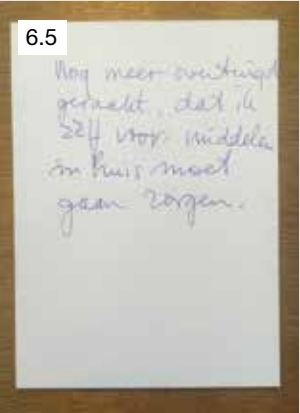 6.5
Nog meer overtuigd
geraakt, dat ik
zelf voor middelen
in huis moet
gaan zorgen.